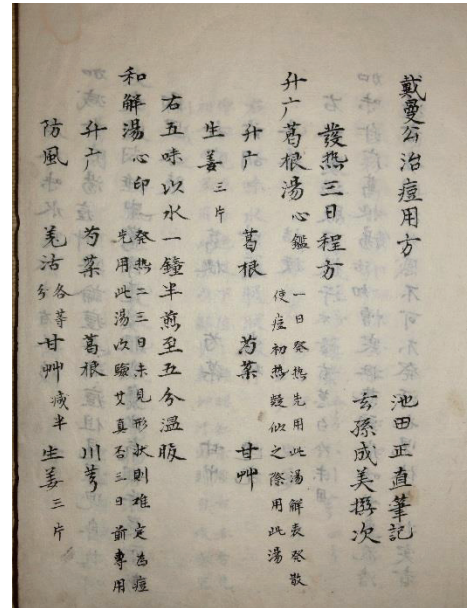 戴曼公治痘用方　池田正直筆記
玄孫成美撰次
發热三日程方
升广葛根湯 心鑑 一日發热先用此湯解表發散
使痘初热疑似之際用此湯
升广　葛根　芍薬　甘艸
生姜 三片
右五味以水一鐘半煎至五分温服
和解湯 心印 發热二三日未見形狀則難定為痘
先用此湯以驗其真否三日前專用
升广　芍薬　葛根　川芎
防風　羌活 各等分 甘艸 减半 生姜 三片